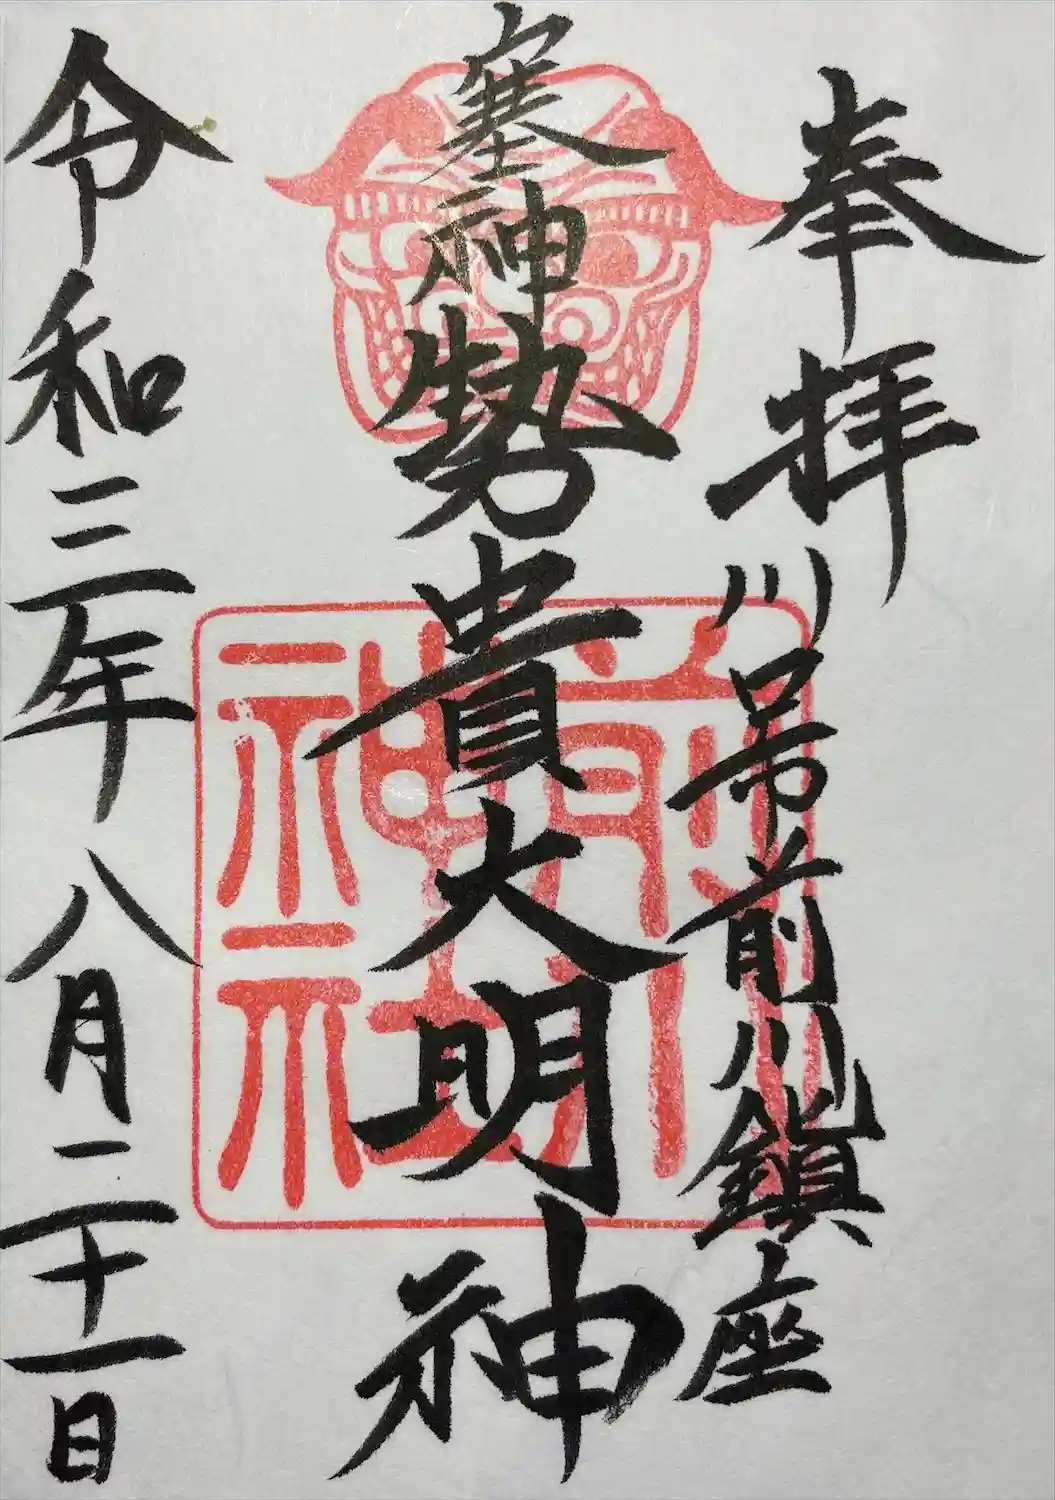 奉拝
川口市前川鎮座
塞神勢貴大明神
令和三年八月二十一日
前川
神社